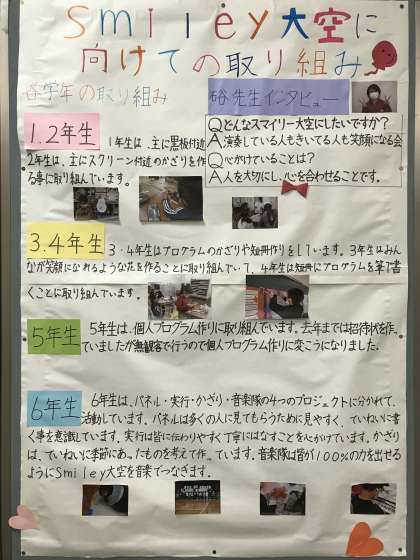 Smiley大空に
向けての取り組み
各学年の取り組み
先生インタビュー
Qどんなスマイリー大空にしたいですか?
A演奏している人もきいてる人も笑顔になる会
Q心がけていることは?
A人を大切にし、心を合わせることです。
1.2年生
1年生は、主に黒板付近
2年生は、主にスクリーン付近のかざりを作
る事に取り組んでいます。
3.4年生
3・4年生はプログラムのかざりや短冊作りをしています。3年生はみん
なが笑顔になれるような花を作ることに取り組んでいて、4年生は短冊にプログラムを筆で書
くことに取り組んでいます。
5年生
5年生は、個人プログラム作りに取り組んでいます。去年までは招待状を作っ
ていましたが無観客で行うので個人プログラム作りに変こうになりました。
6年生
6年生は、パネル・実行・かざり・音楽隊の4つのプロジェクトに分かれて、
活動しています。パネルは多くの人に見てもらうために見やすく、ていねいに書
く事を意識しています。実行は皆に伝わりやすく丁寧にはなすことを心がけています。かざり
は、ていねいに季節にあったものを考えて作っています。音楽隊は皆が100%の力を出せる
ようにSmiley大空を音楽でつなぎます。